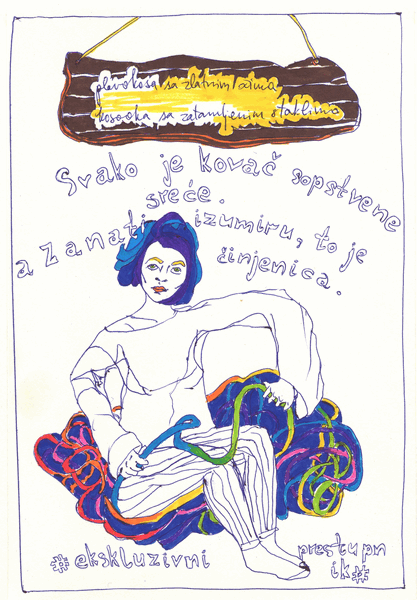 plavokosa sa zlatnim očima
kosooka sa zatamljenim staklima
Svako je kovač sopstvene
sreće.
a zanati izumiru, to je
činjenica.
#ekskluzivni
prestupn
ik#